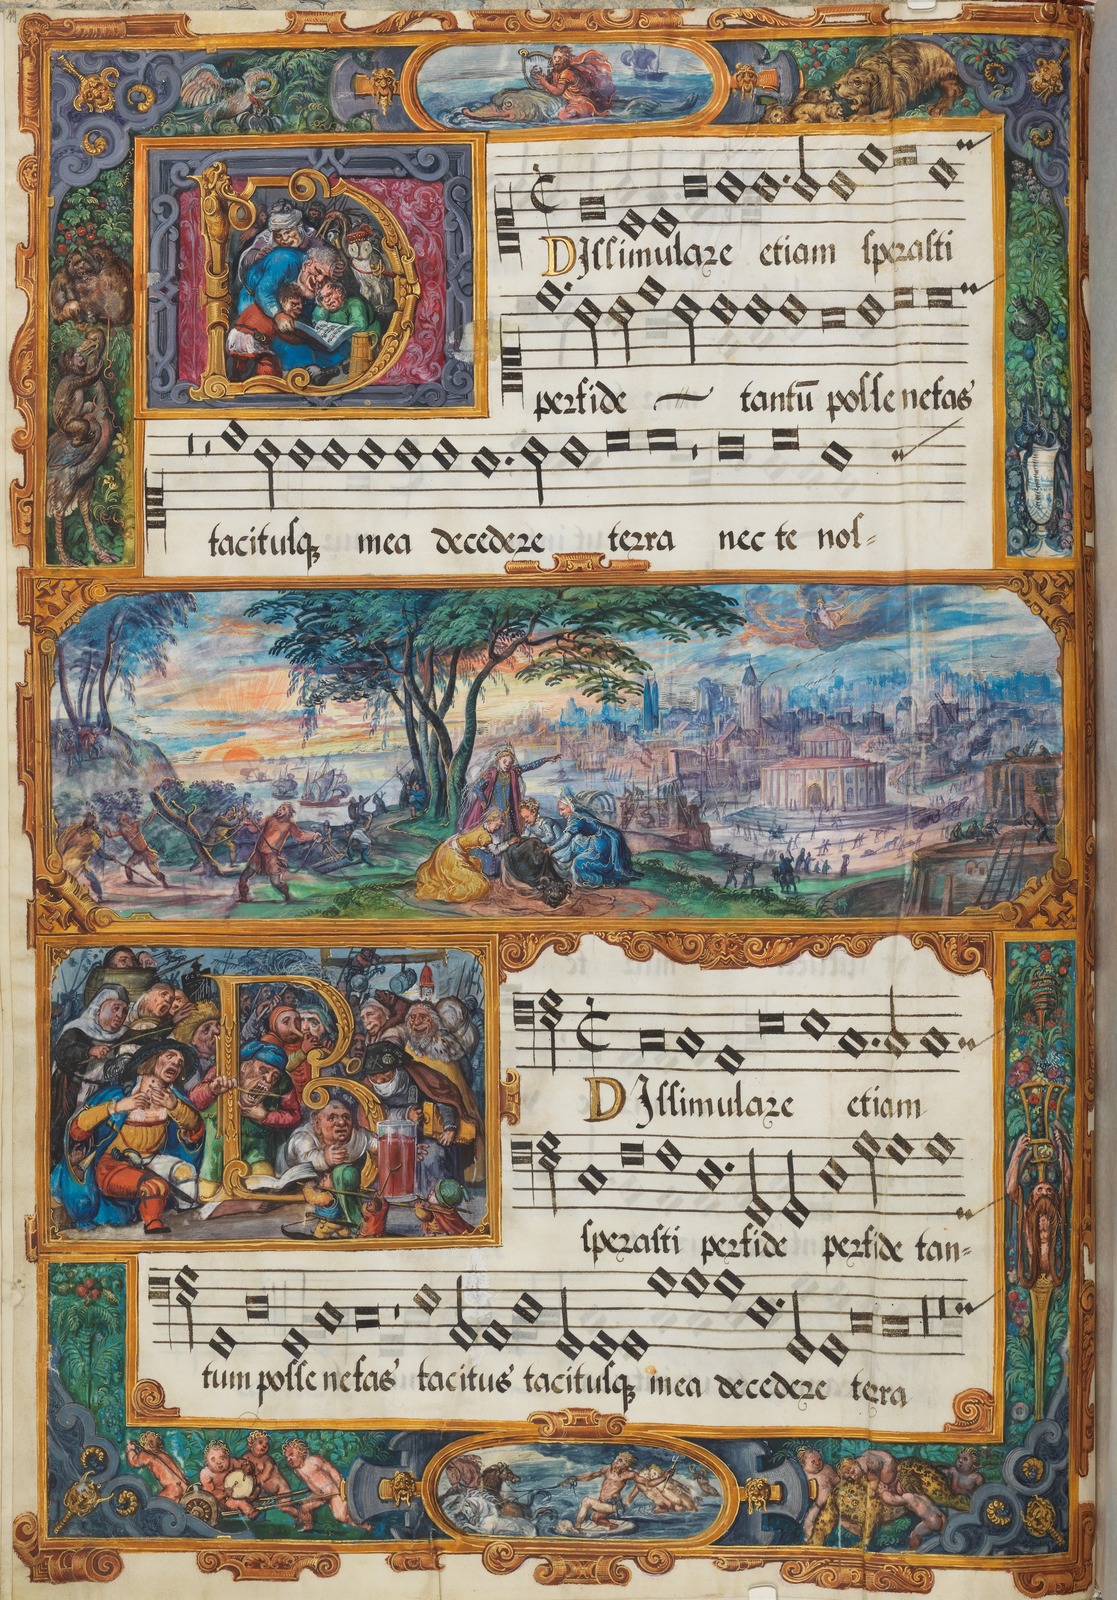 DIssimulare etiam sperasti
perfide tantū posse nefas
tacitusqꝫ mea decedere terra nec te nos=
DIssimulare etiam
sperasti perfide perfide tan=
tum posse nefas tacitus tacitusqꝫ mea decedere terra